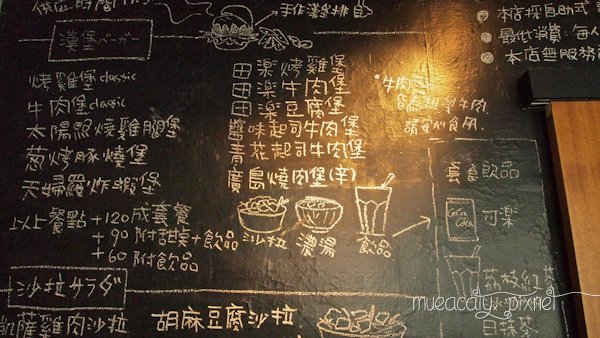 供應時間
手作漢排
本店採自助式
最低消費:每人
本店無服務
漢堡バーガー
烤雞堡classic
牛肉堡classic
太陽眼燒雞腿堡
蔥烤豚燒堡
天婦羅炸蝦堡
以上餐點+120成套餐
+90附甜點+飲品
+60附飲品
田楽烤雞堡
田楽牛肉堡
田楽豆腐堡
醬味起司牛肉堡
青花起司牛肉堡
廣島燒肉堡(辛)
沙拉
濃湯
飲品
牛肉
請安心食用.
套食飲品
Coca Cola
可楽
荔枝紅
日抹茶
沙拉サラダ
凱薩雞肉沙拉
胡麻豆腐沙拉
mueacaty. pixnet